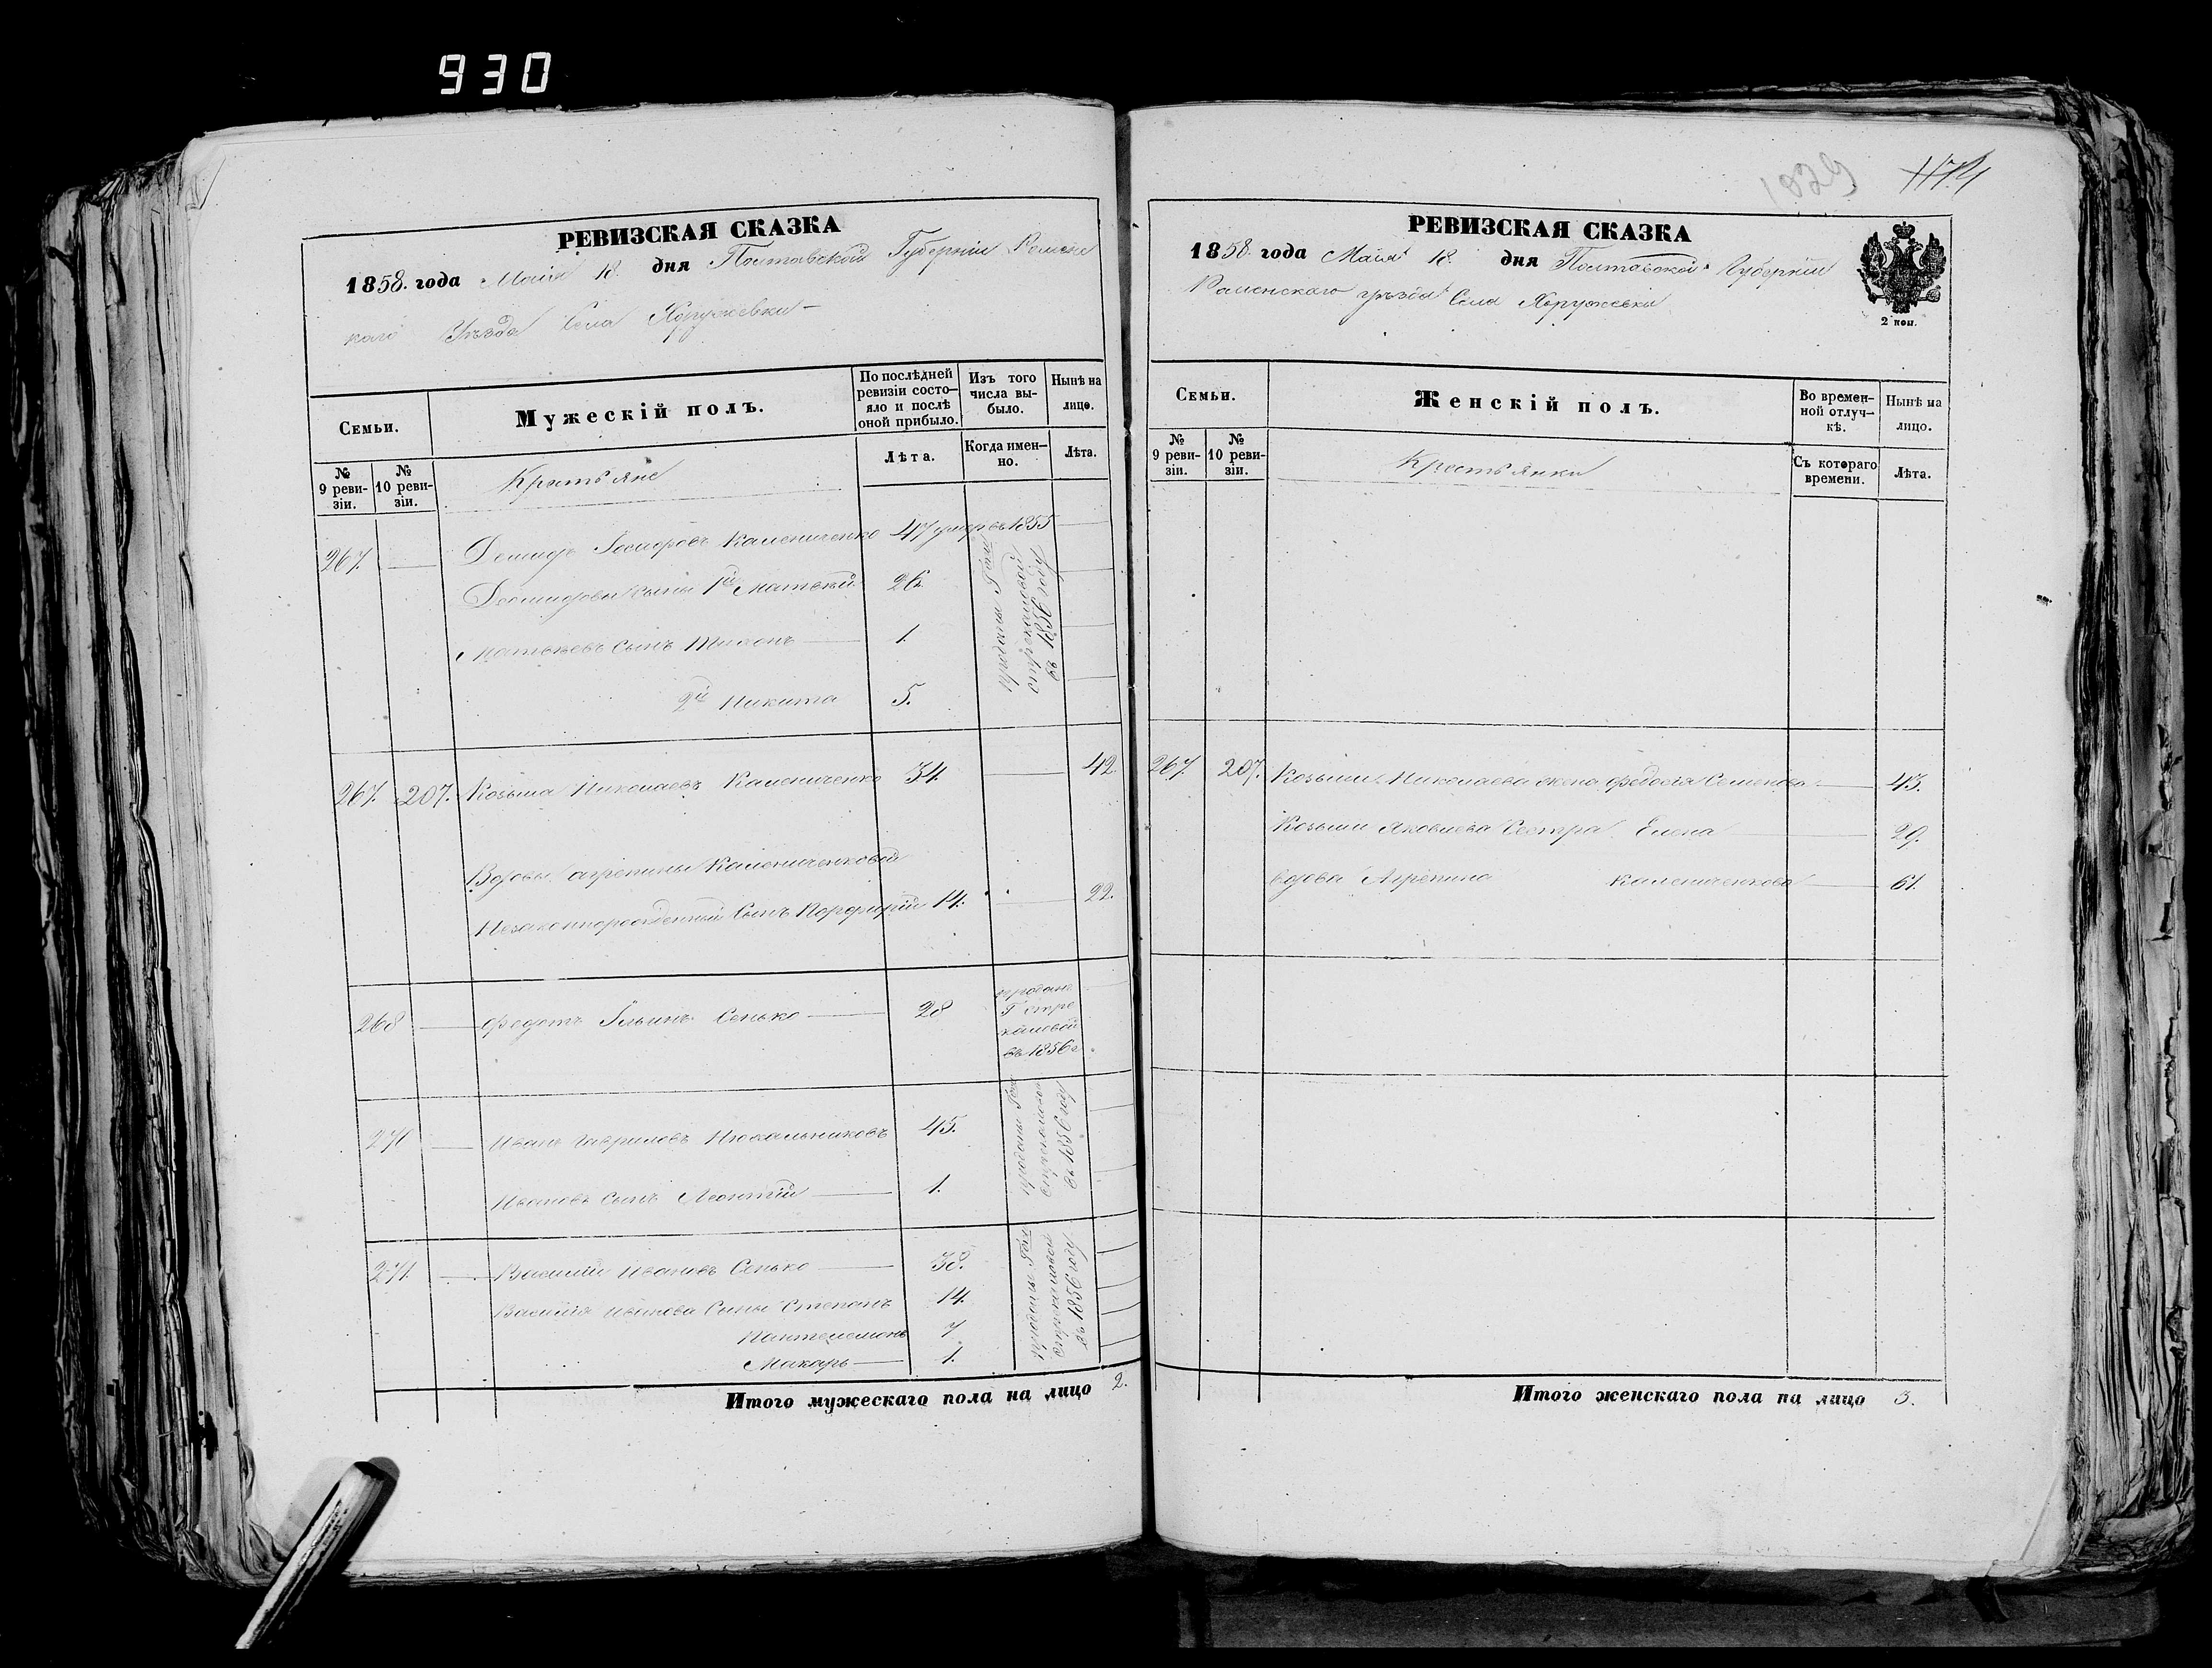 930
РЕВИЗСКАЯ СКАЗКА
1858. года Маія 18. дня Полтавской Губерніи Ромен
каго Уѣзда Села Хоружевки
Семьи.
Мужескій полъ.
По послѣдней ревизіи состояло и послѣ оной прибыло.
Изъ того числа выбыло.
Нынѣ на лицо.
№ 9 ревизіи.
№ 10 ревизіи.
Крестьяне
Лѣта.
Когда именно.
Лѣта.
267. — Демидъ Іосифовъ Калениченко 47 умеръ 1855
Демидовы сыны 1й Матвѣй 26.
Матвѣевъ Сынъ 1.
2й Никита 5.
проданы Гжѣ
Стрекаловой
въ 1856 году
267. 207. Козьма Николаевъ Калениченко 34. — 42
Вдовы Агрепины Калениченковой
Незаконнорожденный Сынъ Порфирій 14. — 22.
268 — Федотъ Ильинъ Сенько — 28
проданъ
Г Стре
каловой
въ 1856 г
271 — Иванъ Гавриловъ 45.
Ивановъ Сынъ Леонтій — 1.
проданы Гжѣ
Стрекаловой
въ 1856 году
271. — Василій Ивановъ Сенько — 38.
Василія Иванова Сыны Степанъ 14.
Пантелемонъ 7
Макаръ — 1.
проданы Гжѣ
Стрекаловой
въ 1856 году
Итого мужескаго пола на лицо 2.
1029
РЕВИЗСКАЯ СКАЗКА
1858. года Маія 18. дня Полтавской Губерніи
Роменскаго уѣзда Села Хоружевки
2 коп.
Семьи.
Женскій полъ.
Во временной отлучкѣ.
Нынѣ на лицо.
№ 9 ревизіи.
№ 10 ревизіи.
Крестьянки
Съ котораго времени.
Лѣта.
267. 207. Козьмы Николаева жена Федосія Семенова — 43.
Козьмы Яковлева Сестра Елена — 29.
вдова Агрепина Калениченкова — 61.
Итого женскаго пола на лицо 3.